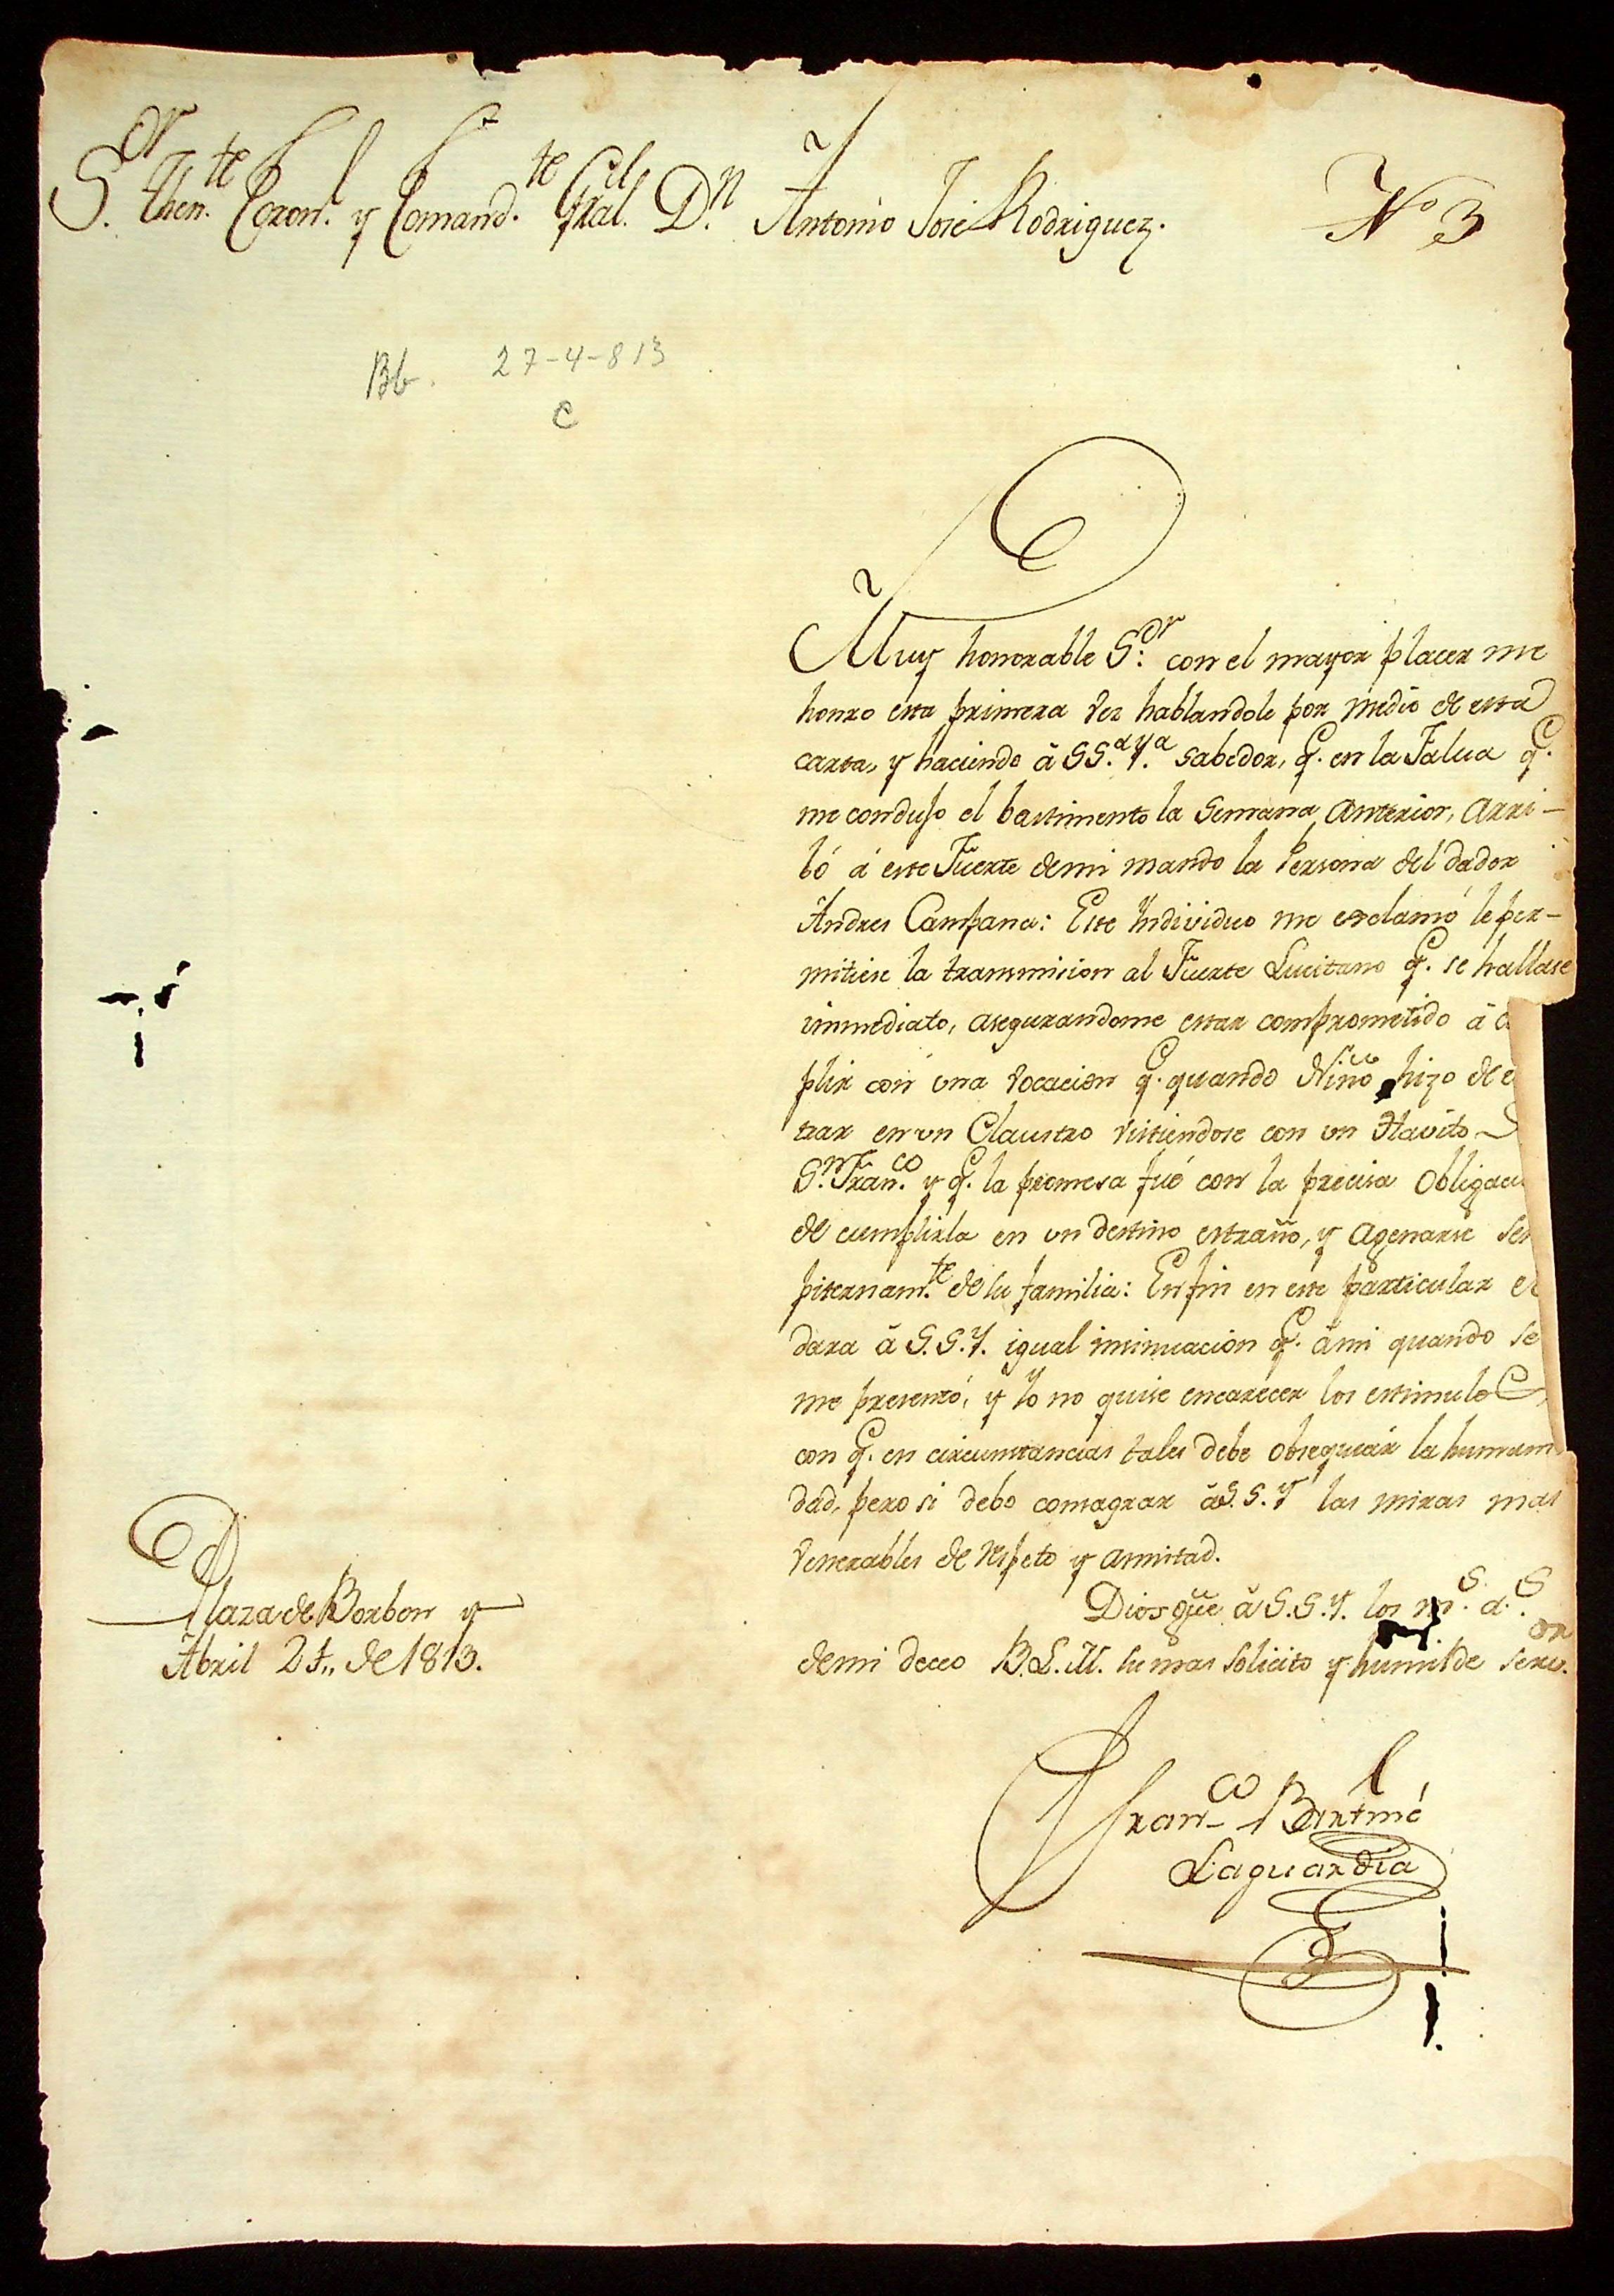 S.ᵒʳ then.ᵗᵉ Coron.ˡ y Comand.ᵗᵉ Gral. D.ⁿ Antonio José Rodriguez.
Nº 3
Bb. 27-4-813
C
Muy honorable S.ᵒʳ: con el mayor placer me
honro esta primera vez hablandole por medio de esta
carta, y haciendo â SS.ᵃ Y.ᵃ sabedor, q. en la Falua q.
me condujo el bastimento la semana anterior, arri-
bó á este Fuerte de mi mando la Persona del dador
Andres Campana: Este Yndividuo me exclamó le per-
mitiese la transmision al Fuerte Lucitano q. se hallase
immediato, asegurandome estar comprometido â
plir con una vocacion q. quando Niño hizo de
trar en un Claustro vistiendose con un Havito
S.ⁿ Fran.ᶜᵒ y q. la promesa fué con la precisa obligac
de cumplirla en un destino estraño, y agenarse
piternam.ᵗᵉ de su familia: En fin en este particular
dara â S.S.Y. igual insinuacion q. âmi quando se
me presentó, y Yo no quise encarecer los estimulos
con q. en circunstancias tales debe obsequiar la humani
dad, pero si debo consagrar âS.S.Y las miras mas
venerables de respeto y amistad.
Dios güe â S.S.Y. los m.ˢ a.ˢ
de mi deceo B.L.M. su mas solicito y humilde serv.ᵒʳ
Plaza de Borbon y
Abril 27,, de 1813.
Fran.ᶜᵒ Bartmé
Laguardia